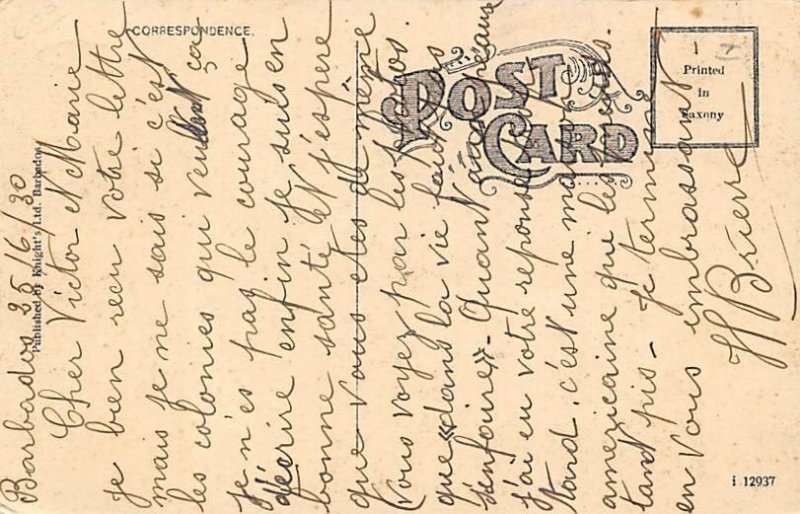 CORRESPONDENCE.
POST
CARD
Printed
in
Saxony
Published by Knight's Ltd. Barbados
i 12937
Barbados 25/6/30
Cher Victor et Marie
je bien recu votre lettre
mais je ne sais si c'est
les colonies qui ça
je n'es pas le courage
décrire enfin je suis en
bonne santé et j'espère
que vous etes de même
Vous voyez par les photos
que "dans la vie faut pas
s'enfaire" - Quant au
j'ai eu votre reponse
tard. c'est une
americaine que les
tant pis - je termine
en vous embrassant
H Brierre